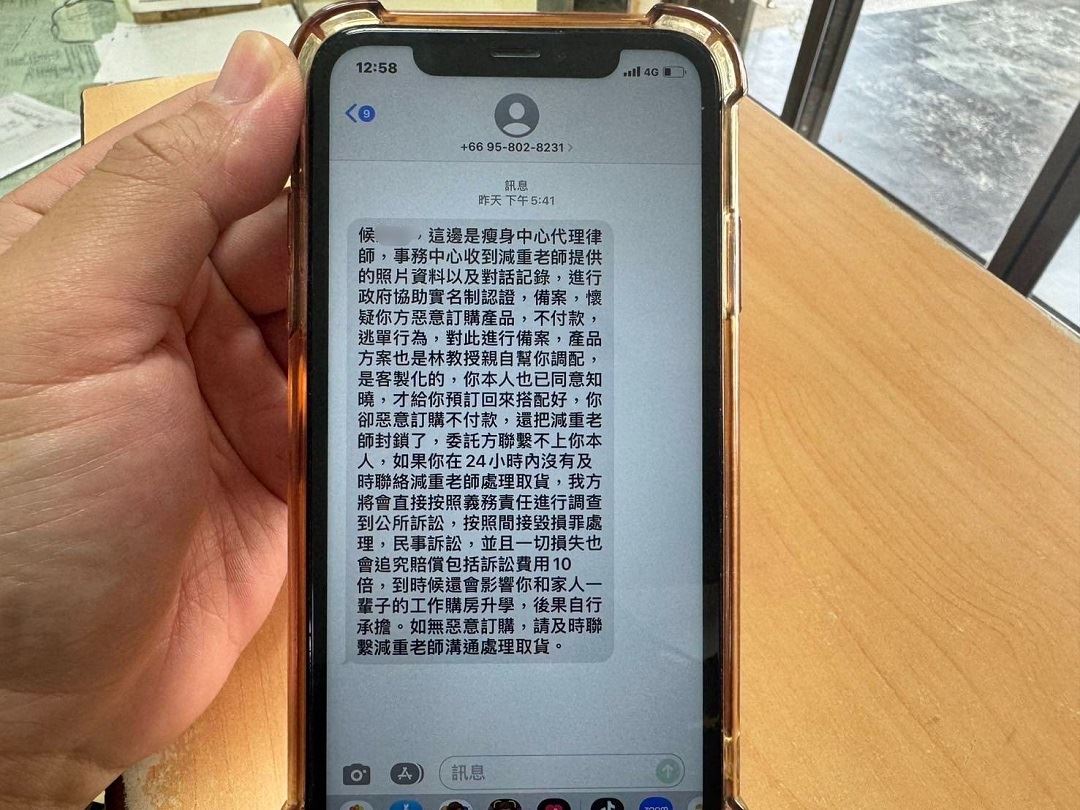 12:58
4G
9
+66 95-802-8231
訊息
昨天 下午5:41
候 ，這邊是瘦身中心代理律
師，事務中心收到減重老師提供
的照片資料以及對話記錄，進行
政府協助實名制認證，備案，懷
疑你方惡意訂購產品，不付款，
逃單行為，對此進行備案，產品
方案也是林教授親自幫你調配，
是客製化的，你本人也已同意知
曉，才給你預訂回來搭配好，你
卻惡意訂購不付款，還把減重老
師封鎖了，委託方聯繫不上你本
人，如果你在24小時內沒有及
時聯絡減重老師處理取貨，我方
將會直接按照義務責任進行調查
到公所訴訟，按照間接毀損罪處
理，民事訴訟，並且一切損失也
會追究賠償包括訴訟費用10
倍，到時候還會影響你和家人一
輩子的工作購房升學，後果自行
承擔。如無惡意訂購，請及時聯
繫減重老師溝通處理取貨。
訊息
zoom